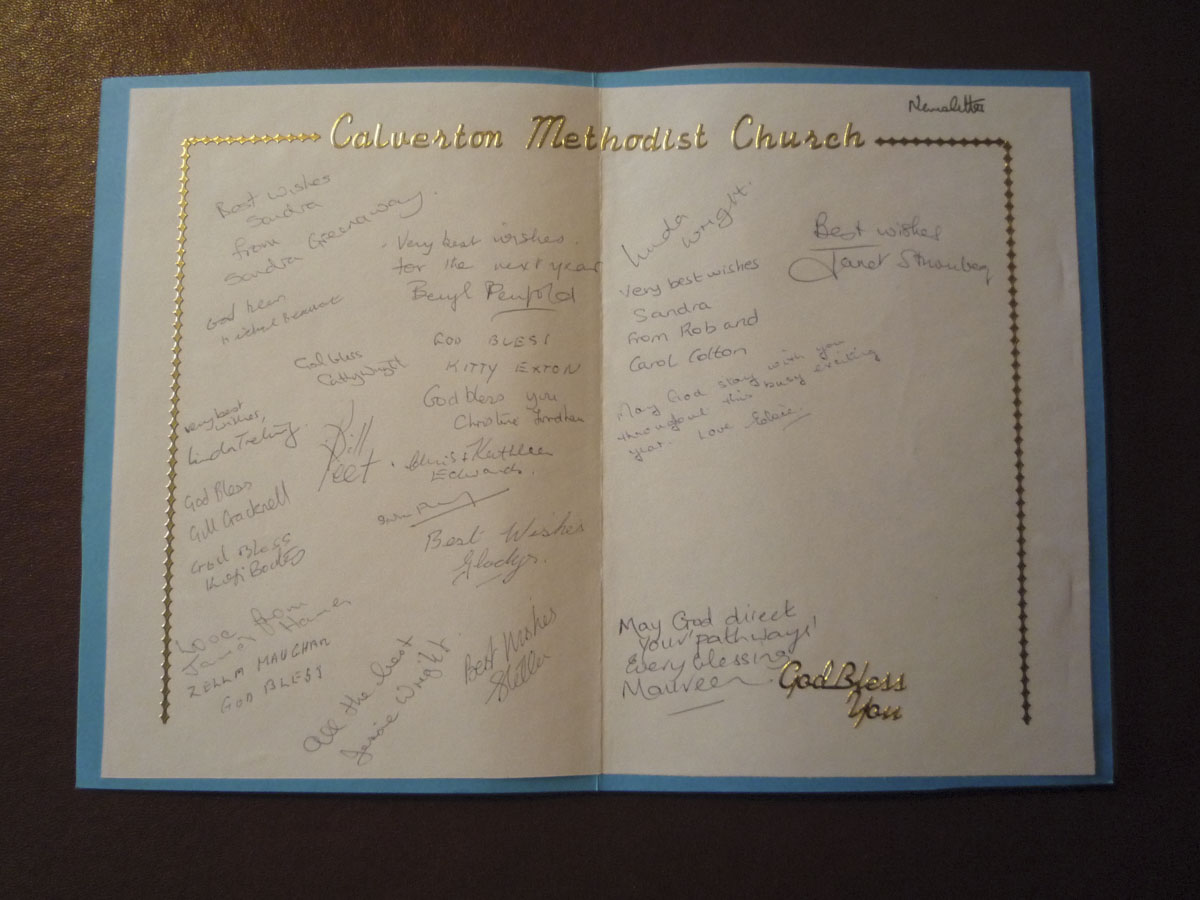 Newsletter
Calverton Methodist Church
Best wishes
Sandra
from
Sandra Greenaway.
Very best wishes.
for the next year
Beryl Penfold
God bless
Michael Beaumont
GOD BLESS
KITTY EXTON
God bless
Cathy Wright
God bless you
Christine Fordham
very best
wishes,
Linda
Bill
Peet
Chris + Kathleen
Edwards.
God Bless
Gill Cracknell
GOD BLESS
Best Wishes
Gladys.
Love from
ZELLA MAUGHAN
GOD BLESS
All the best
Wright
Best Wishes
Linda
Wright.
Best wishes
Janet
Very best wishes
Sandra
From Rob and
Carol Colton
May God stay with you
throughout this busy exciting
year. Love
May God direct
your pathways!
Every blessing
Maureen.
God Bless
You